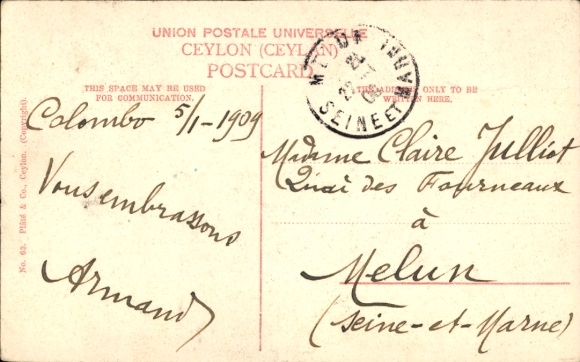 UNION POSTALE UNIVERSELLE
CEYLON (CEYLAN)
POSTCARD
THIS SPACE MAY BE USED
FOR COMMUNICATION.
THE ADDRESS ONLY TO BE
WRITTEN HERE.
MELUN
SEINE ET MARNE
Colombo 5/1-1909
Vous embrassons
Armand
Madame Claire Julliot
Quai des Fourneaux
à
Melun
(Seine-et-Marne)
No. 63. Plâté & Co., Ceylon. (Copyright).